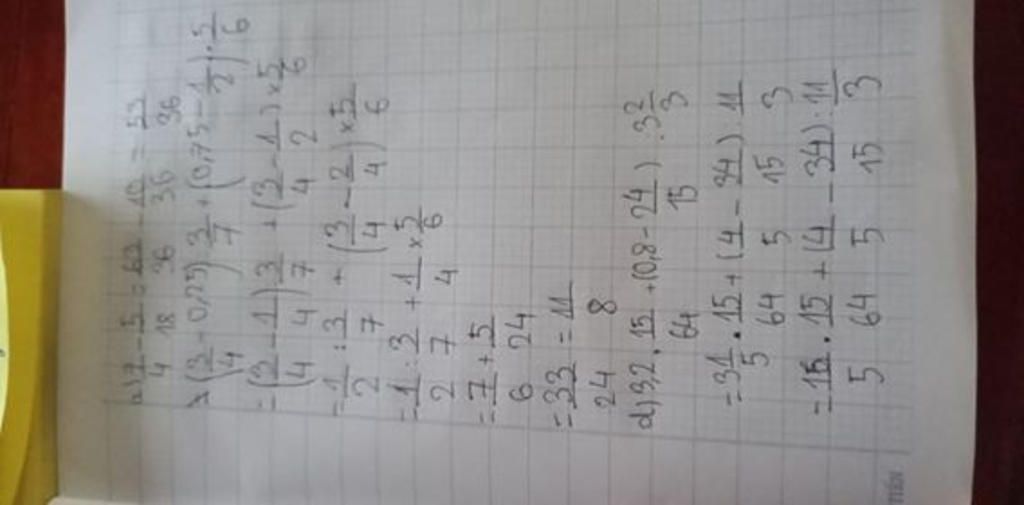 a) 7/4 - 5/18 = 63/36 - 10/36 = 53/36
(3/4 - 0,25) 3/7 + (0,75 - 1/2) . 5/6
= (3/4 - 1/4) 3/7 + (3/4 - 1/2) × 5/6
= 1/2 : 3/7 + (3/4 - 2/4) × 5/6
= 1/2 : 3/7 + 1/4 × 5/6
= 7/6 + 5/24
= 33/24 = 11/8
d) 3,2 . 15/64 + (0,8 - 24/15) : 3 2/3
= 31/5 . 15/64 + (4/5 - 34/15) 11/3
= 16/5 . 15/64 + (4/5 - 34/15) . 11/3
TIẾN